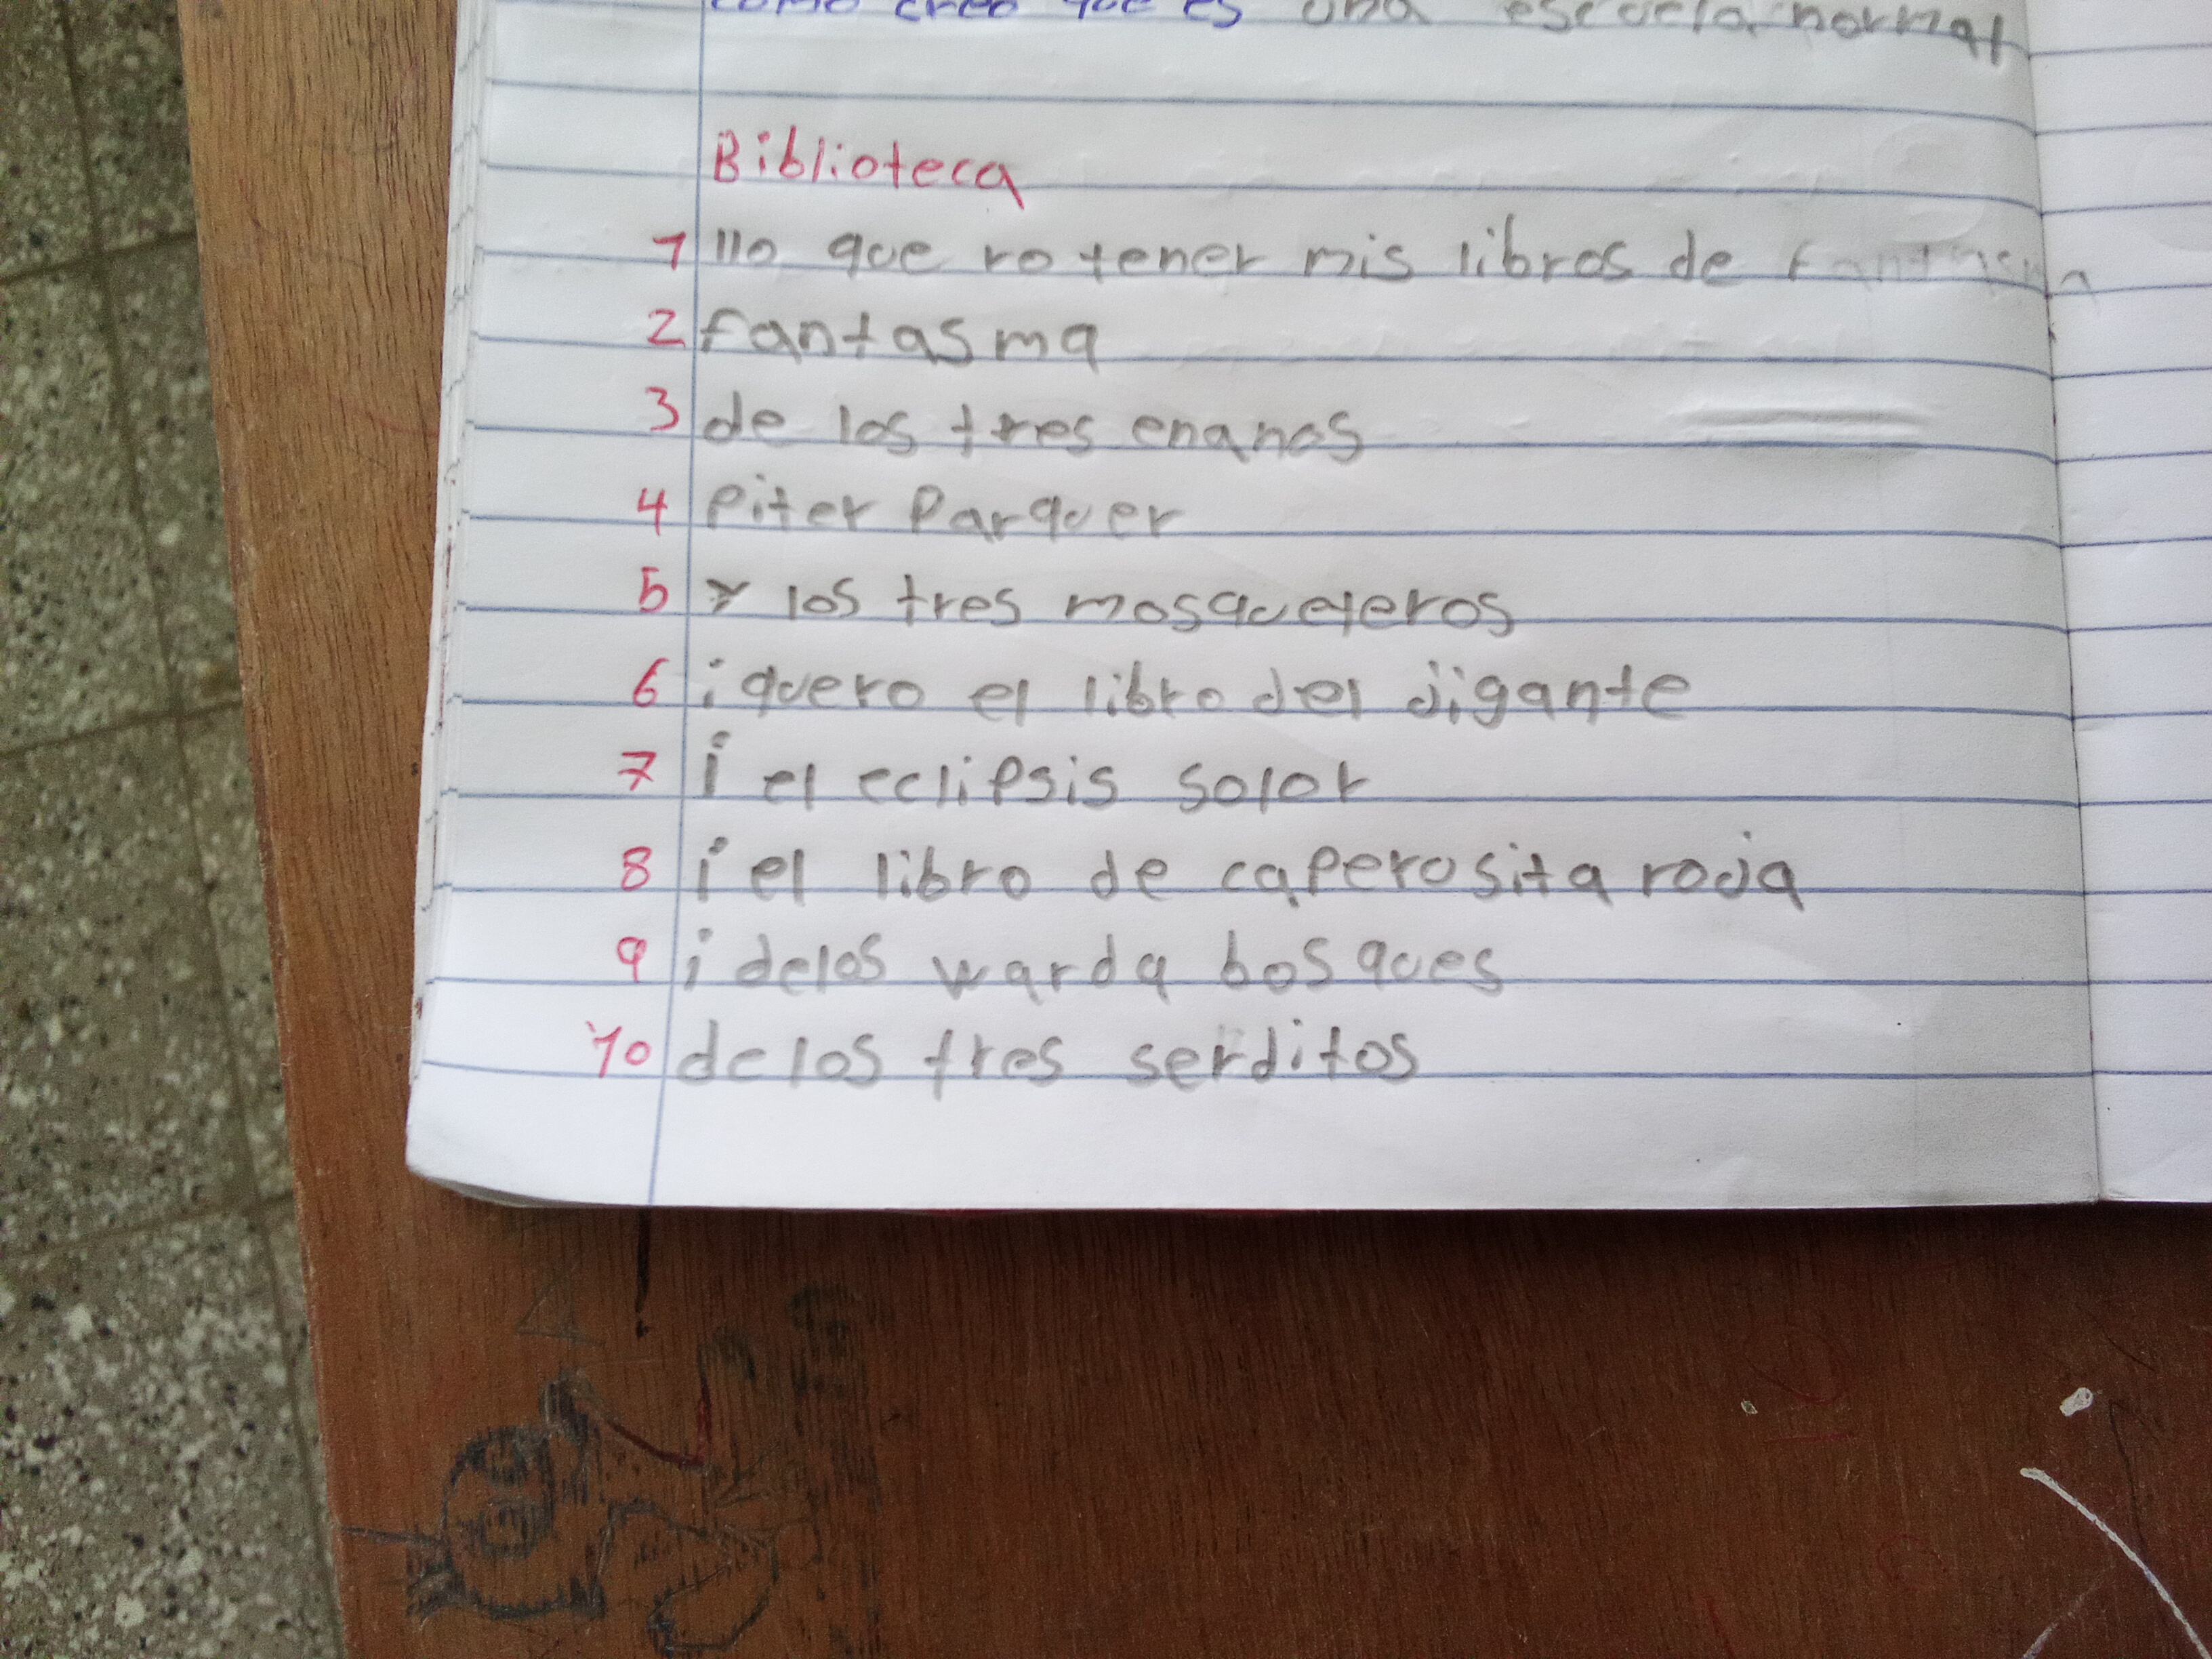 como creo que es una escuela normal
Biblioteca
1 llo que ro tener mis libros de fantasma
2 fantasma
3 de los tres enanos
4 Piter Parquer
5 y los tres mosqueteros
6 i quero el libro del jigante
7 i el eclipsis solor
8 i el libro de caperosita roja
9 i delos warda bosques
10 delos tres serditos